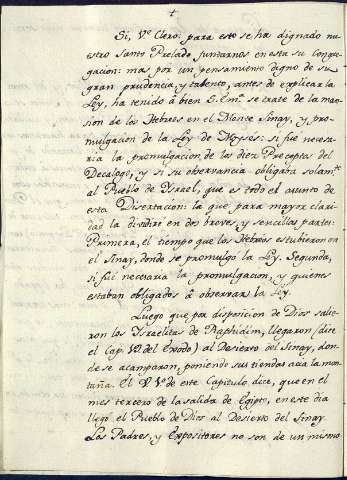 Si, Vᵉ. Clero: para esto se ha dignado nu-
estro Santo Prelado juntarnos en esta su congre-
gacion: mas por un pensamiento digno de su
gran prudencia, y talento, antes de explicar la
Ley, ha tenido á bien S. Emª. se trate de la man-
sion de los Hebreos en el Monte Sinay, y pro-
mulgacion de la Ley de Moyses: si fue necesa-
ria la promulgacion de los diez Preceptos del
Decalogo, y si su observancia obligaba solamᵗᵉ.
al Pueblo de Ysrael, que es todo el asunto de
esta Disertacion: la que para mayor clari-
dad la dividiré en dos breves, y sencillas partes:
Primera, el tiempo que los Hebreos estubieron en
el Sinay, donde se promulgó la Ley. Segunda,
si fue necesaria la promulgacion, y quienes
estaban obligados á observar la Ley.
Luego que por disposicion de Dios salie-
ron los Israelitas de Raphidim, llegaron (dice
el Cap. 19. del Exodo) al Desierto del Sinay, don-
de se acamparon, poniendo sus tiendas acia la mon-
taña. El V. 1º. de este Capitulo dice, que en el
mes tercero de la salida de Egipto, en este dia
llegó el Pueblo de Dios al Desierto del Sinay.
Los Padres, y Expositores no son de un mismo